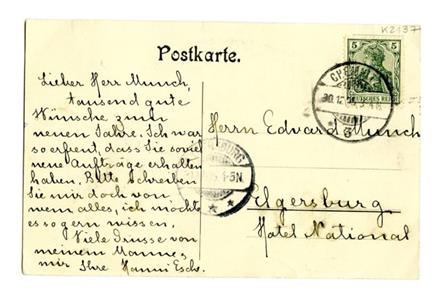 K2137
Postkarte.
Lieber Herr Munch,
tausend gute
Wünsche zum
neuen Jahre. Ich war
so erfreut, dass Sie soviel
neue Aufträge erhalten
haben. Bitte schreiben
Sie mir doch von
wem alles, ich möchte
es so gern wissen.
Viele Grüsse von
meinem Manne,
mir Ihre Hanni Esche.
5 5
DEUTSCHES REICH
CHEMNITZ
30.12.
Herrn Edvard Munch
BURG
1-5N.
Elgersburg
Hotel National